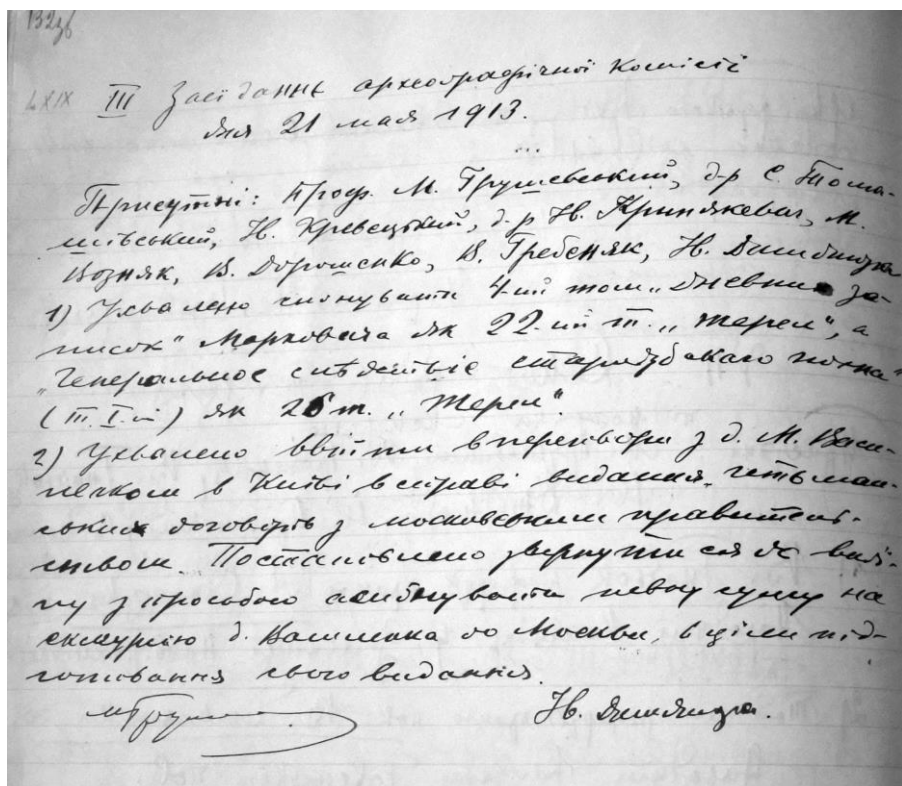 132зв
LXIX III Засїданнє археографічної комісії
дня 21 мая 1913.
Присутні: Проф. М. Грушевський, д-р С. Тома-
шівський, Ів. Кревецький, д-р Ів. Крипякевич, М.
Возняк, В. Дорошенко, В. Гребеняк, Ів. Джиджора
1) Ухвалено 4-ий том „Дневних за-
писок" Марковича як 22-ий т. „Жерел", а
„Генеральное слѣдствіе стародубского полка"
(т. I-й) як 26 т. „Жерел".
2) Ухвалено ввійти в переговори з д. М. Васи-
ленком в Київі в справі видання гетьман-
ських договорів з московським правитель-
ством. Постановлено звернути ся до виді-
лу з просьбою асиґнувати певну суму на
екскурсію д. Василенка до Москви, в ціли під-
готовання свого видання.
Ів. Джиджора.